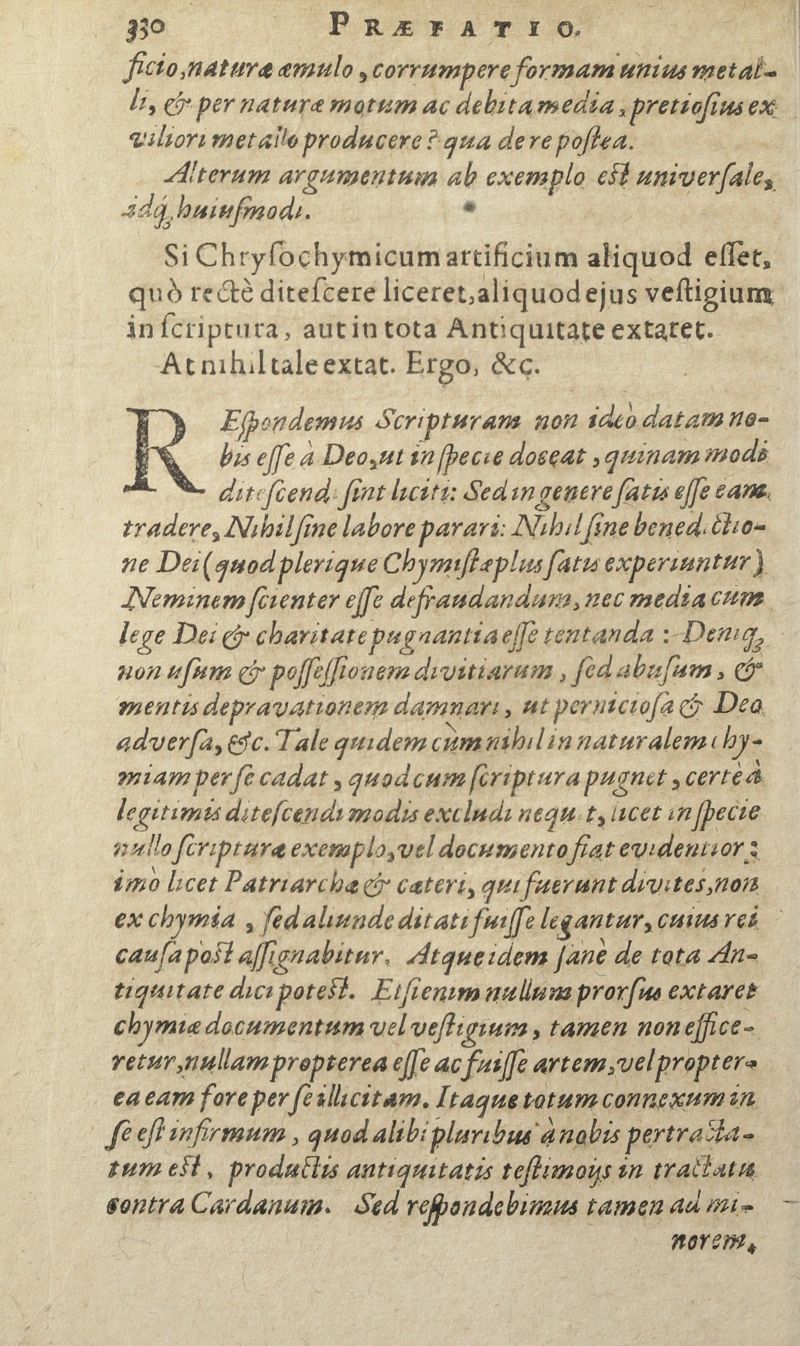 330 PRÆFATIO.
ficio, naturæ æmulo, corrumpere formam unius metal-
li, & per naturæ motum ac debita media, pretiosius ex
viliori metallo producere? qua de re postea.
Alterum argumentum ab exemplo est universale,
idq; huiusmodi.
Si Chrysochymicum artificium aliquod esset,
quò rectè ditescere liceret, aliquod ejus vestigium
in scriptura, aut in tota Antiquitate extaret.
At nihil tale extat. Ergo, &c.
REspondemus Scripturam non ideò datam no-
bis esse à Deo, ut in specie doceat, quinam modi
ditescendi sint liciti: Sed in genere satis esse eam
tradere, Nihil sine labore parari: Nihil sine benedictio-
ne Dei (quod plerique Chymistæ plus satis experiuntur)
Neminem scienter esse defraudandum, nec media cum
lege Dei & charitate pugnantia esse tentanda: Deniq;
non usum & possessionem divitiarum, sed abusum, &
mentis depravationem damnari, ut perniciosa & Deo
adversa, &c. Tale quidem cùm nihil in naturalem chy-
miam per se cadat, quod cum scriptura pugnet, certè à
legitimis ditescendi modis excludi nequit, licet in specie
nullo scripturæ exemplo, vel documento fiat evidentior;
imò licet Patriarchæ & cæteri, qui fuerunt divites, non
ex chymia, sed aliunde ditati fuisse legantur, cuius rei
causa pòst assignabitur. Atque idem sanè de tota An-
tiquitate dici potest. Etsi enim nullum prorsus extaret
chymiæ documentum vel vestigium, tamen non effice-
retur, nullam propterea esse ac fuisse artem, vel propter-
ea eam fore per se illicitam. Itaque totum connexum in
se est infirmum, quod alibi pluribus à nobis pertracta-
tum est, productis antiquitatis testimoijs in tractatu
contra Cardanum. Sed respondebimus tamen ad mi-
norem,